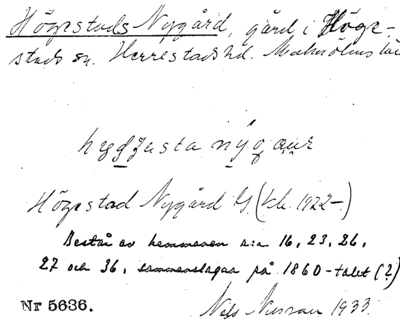 Högestads Nygård, gård i Höge-
stads sn. Herrestads hd. Malmöhus län
Högestad Nygård G. (kb. 1922-)
Består av hemmanen n:o 16, 23, 26,
27 och 36, sammanslagna på 1860-talet (?)
Nr 5636.
1933.